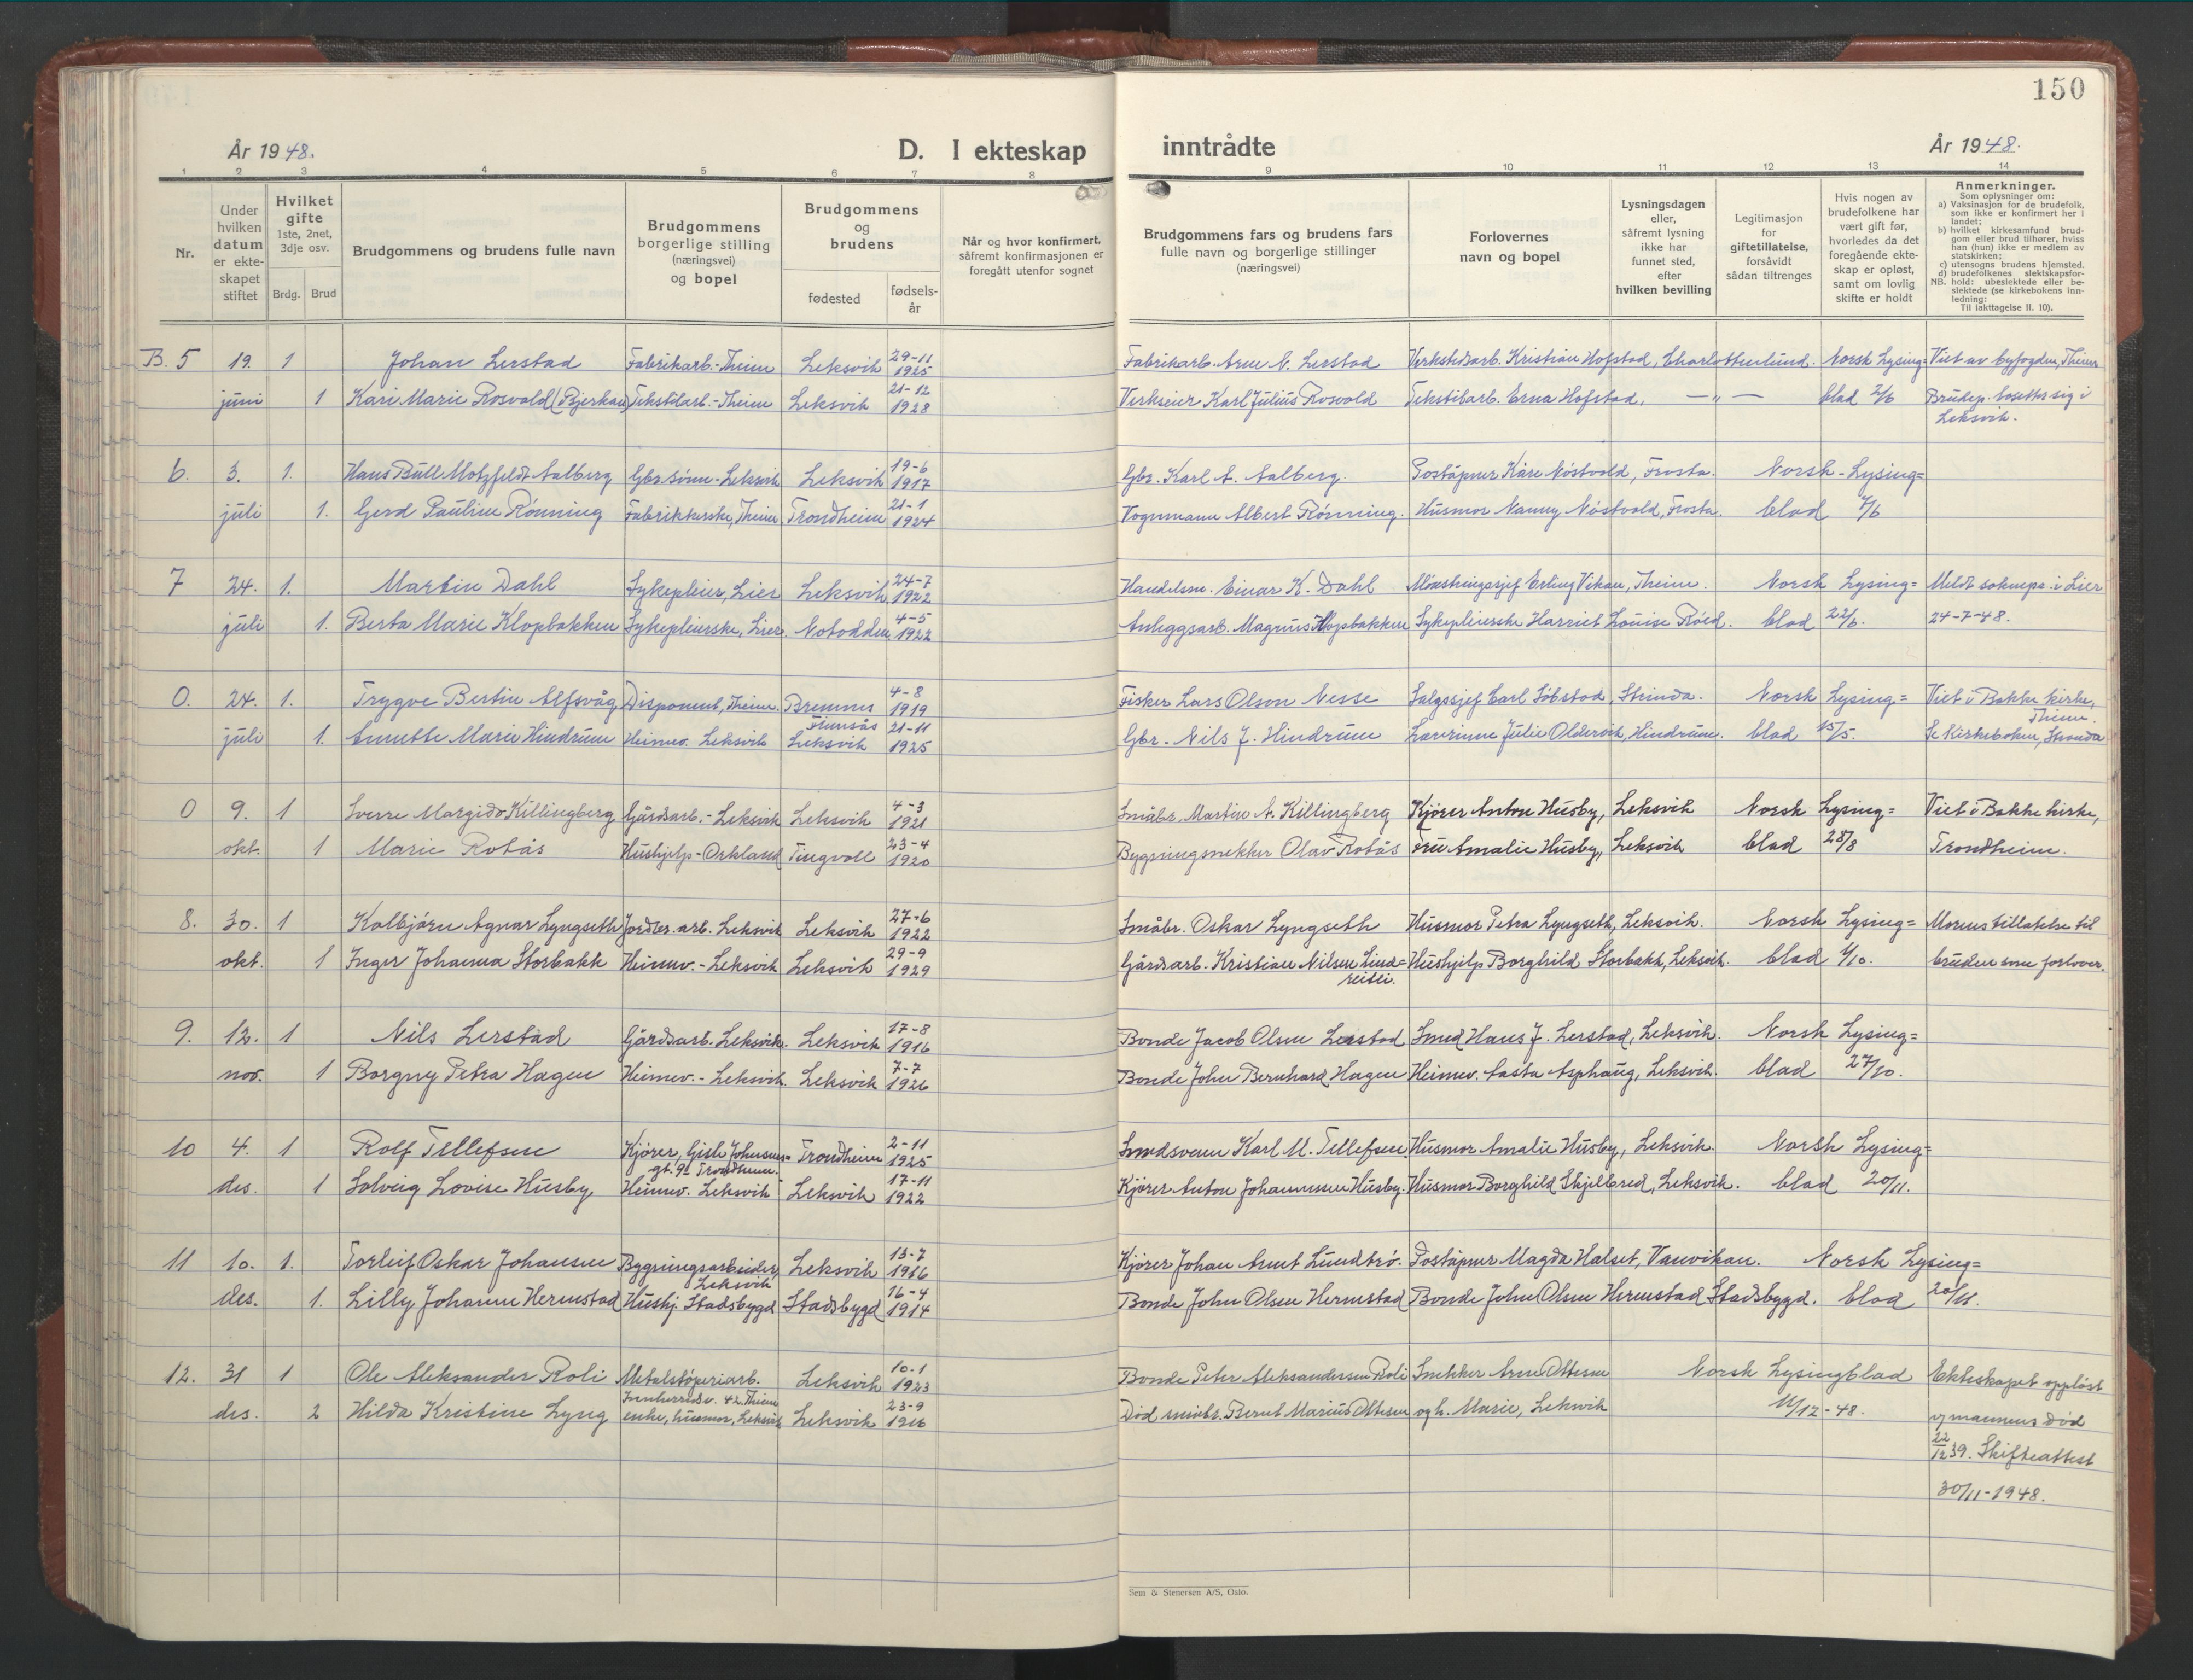 150
År 1948.
D. I ekteskap inntrådte
År 1948.
1 2 3 4 5 6 7 8 9 10 11 12 13 14
Nr.
Under hvilken datum er ekteskapet stiftet
Hvilket gifte 1ste, 2net, 3dje osv.
Brdg. Brud
Brudgommens og brudens fulle navn
Brudgommens borgerlige stilling (næringsvei) og bopel
Brudgommens og brudens
fødested
fødsels-år
Når og hvor konfirmert, såfremt konfirmasjonen er foregått utenfor sognet
Brudgommens fars og brudens fars fulle navn og borgerlige stillinger (næringsvei)
Forlovernes navn og bopel
Lysningsdagen eller, såfremt lysning ikke har funnet sted, efter hvilken bevilling
Legitimasjon for giftetillatelse, forsåvidt sådan tiltrenges
Hvis nogen av brudefolkene har vært gift før, hvorledes da det foregående ekteskap er opløst, samt om lovlig skifte er holdt
Anmerkninger.
Som oplysninger om:
a) Vaksinasjon for de brudefolk, som ikke er konfirmert her i landet;
b) hvilket kirkesamfund brudgom eller brud tilhører, hviss han (hun) ikke er medlem av statskirken;
c) utensogns brudens hjemsted.
d) brudefolkenes slektskapsforhold: ubeslektede eller beslektede (se kirkebokens innledning:
NB. Til iakttagelse II. 10).
B. 5 19. 1 Johan Lerstad Fabrikarb.-Theim Leksvik 29-11 1925 Fabrikarb. Arne N. Lerstad Verkstedsarb. Kristian Hofstad, Charlottenlund. Norsk Lysing= Viet av byfogden, Theim
juni 1 Kari Marie Rosvold (Bjerkan) Tekstilarb.-Theim Leksvik 21-12 1928 Verkseier Karl Julius Rosvold Tekstilarb. Erna Hofstad, —"— blad 2/6 Brudep. bosetter sig i
Leksvik.
6. 3. 1. Hans Bull Motzfeldt Aalberg Gbr.sønn-Leksvik Leksvik 19-6 1917 Gbr. Karl A. Aalberg. Poståpner Kåre Nöstvold, Frosta. Norsk-Lysing=
juli 1. Gerd Pauline Rønning Fabrikkerske, Theim Trondheim 21-1 1924 Vognmann Albert Rønning. Husmor Nanny Nöstvold, Frosta. blad 7/6
7 24. 1. Martin Dahl Sykepleier, Lier Leksvik 24-7 1922 Handelsm. Einar K. Dahl Mønstringssjef Erling Vikan, Theim. Norsk Lysing= Meldt soknepr. i Lier
juli 1. Berta Marie Klopbakken Sykepleierske, Lier. Notodden 4-5 1922 Anleggsarb. Magnus Klopbakken Sykepleierske Harriet Louise Röed. blad 22/6. 24-7-48.
0. 24. 1. Trygve Bertin Alfsvåg Disponent, Theim. Bremnes 4-8 1919 Fisker Lars Olson Nesse Salgssjef Carl Söbstad, Strinda. Norsk Lysing= Viet i Bakke kirke,
Theim.
juli 1. Annette Marie Hindrum Heimev. Leksvik Leksvik 21-11 1925 Gbr. Nils J. Hindrum Lærerinne Julie Oldervik, Hindrum. blad 15/5. Se Kirkeboken, Strinda
0 9. 1 Sverre Margido Killingberg Gårdsarb.-Leksvik Leksvik 4-3 1921 Småbr. Martin A. Killingberg Kjører Anton Husby, Leksvik Norsk Lysing= Viet i Bakke kirke,
okt. 1 Marie Rotås Hushjelp-Orkland Tingvoll 23-4 1920 Bygningsnekker Olav Rotås Fru Amalie Husby, Leksvik blad 28/8 Trondheim.
8. 30. 1 Kolbjørn Agnar Lyngseth Jordbr.arb. Leksvik Leksvik 27-6 1922 Småbr. Oskar Lyngseth Husmor Petra Lyngseth, Leksvik. Norsk Lysing= Morens tillatelse til
okt. 1 Inger Johanna Storbakk Heimev.-Leksvik Leksvik 29-9 1929 Gårdsarb. Kristian Nilsen Lind= Hushjelp Borghild Storbakk, Leksvik. blad 4/10. bruden som forlover.
reitei.
9. 12. 1 Nils Lerstad Gårdsarb. Leksvik. Leksvik 17-8 1916 Bonde Jacob Olsen Lerstad Smed Hans J. Lerstad, Leksvik. Norsk Lysing=
nov. 1 Borgny Petra Hagen Heimev.-Leksvik. Leksvik 7-7 1926 Bonde John Bernhard Hagen Heimev. Aasta Asphaug, Leksvik. blad 27/10.
10 4. 1 Rolf Tellefsen Kjører, Gisle Johnsens= Trondheim 2-11 1925 Smedsvenn Karl M. Tellefsen Husmor Amalie Husby, Leksvik. Norsk Lysing=
gt. 9 Trondheim.
des. 1 Solveig Lovise Husby Heimev. Leksvik Leksvik 17-11 1922 Kjører Anton Johannesen Husby. Husmor Borghild Skjelbred, Leksvik. blad 20/11.
11 10. 1. Torleif Oskar Johansen Bygningsarbeider, Leksvik 13-7 1916 Kjører Johan Arnt Lundbrö. Poståpner Magda Halset, Vanvikan. Norsk Lysing=
Leksvik
des. 1. Lilly Johanne Hermstad Hushj. Stadsbygd Stadsbygd 16-4 1914 Bonde John Olsen Hermstad Bonde John Olsen Hermstad Stadsbygd. blad 20/11.
12. 31 1 Ole Aleksander Roli Metalstøperiarb. Leksvik 10-1 1923 Bonde Peter Aleksandersen Roli Snekker Arne Ottesen Norsk Lysingblad Ekteskapet oppløst
Innherredsv. 42. Theim
des. 2 Hilda Kristine Lyng enke, husmor, Leksvik Leksvik 23-9 1916 Død småbr. Bernt Marius Ottesen og h. Marie, Leksvik 11/12-48. v/ mannens död
22/12 39. Skifteattest
30/11-1948.
Sem & Stenersen A/S, Oslo.